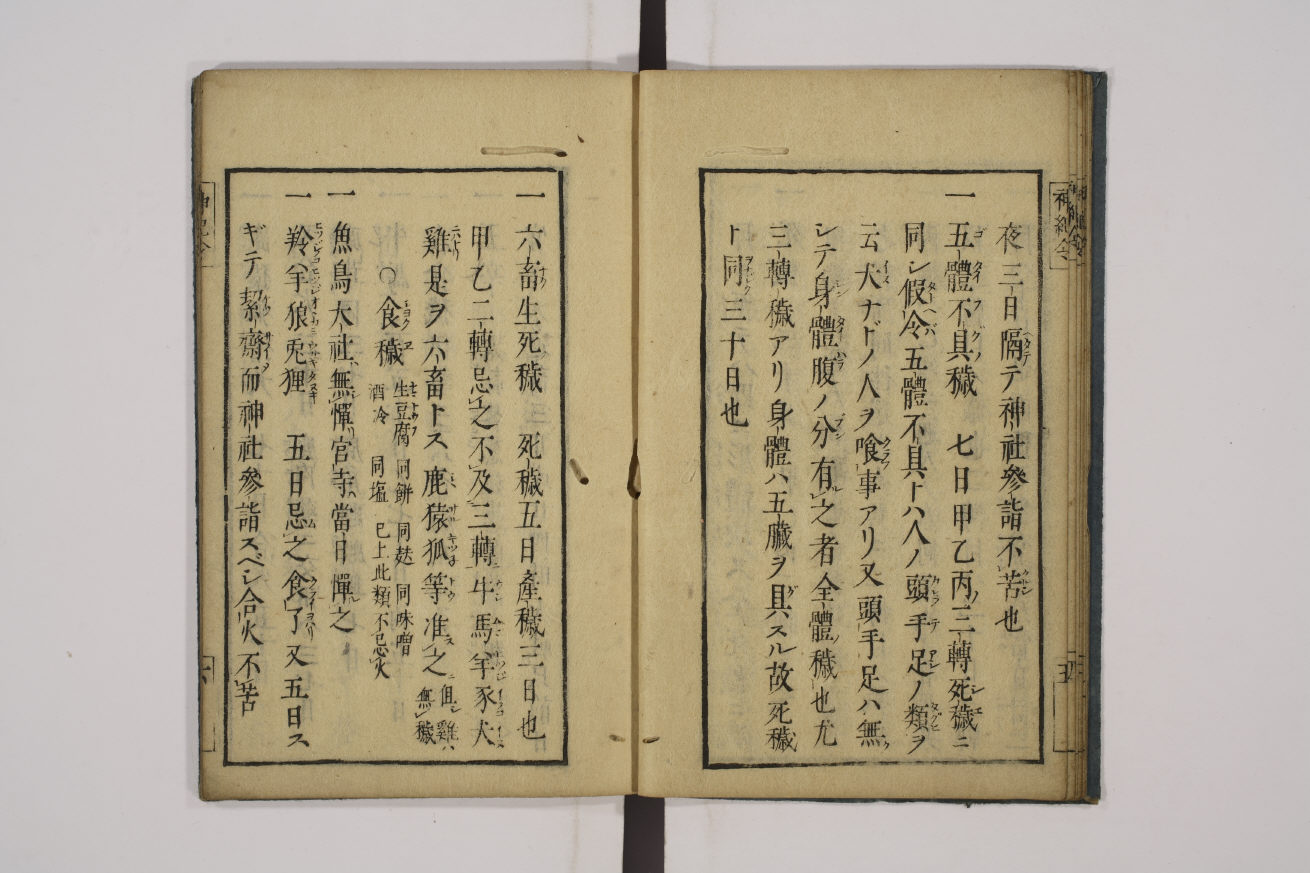 夜三日隔テ神社參詣不苦也
一 五體不具穢 七日甲乙丙三轉死穢ニ
同シ假令五體不具トハ人ノ頭手足ノ類ヲ
云犬ナドノ人ヲ喰事アリ又頭手足ハ無
シテ身體腹ノ分有之者全體穢也尤
三轉穢アリ身體ハ五臟ヲ具スル故死穢
ト同三十日也
一 六畜生死穢 死穢五日產穢三日也
甲乙二轉忌之不及三轉牛馬羊豕犬
雞是ヲ六畜トス鹿猿狐等准之 但雞ハ
無穢
○食穢 生豆腐 同餅 同麸 同味噌
酒冷 同塩 已上此類不忌火
一 魚鳥大社無憚官寺當日憚之
一 羚羊狼兎狸 五日忌之食了又五日ス
ギテ絜齋而神社參詣スベシ合火不苦